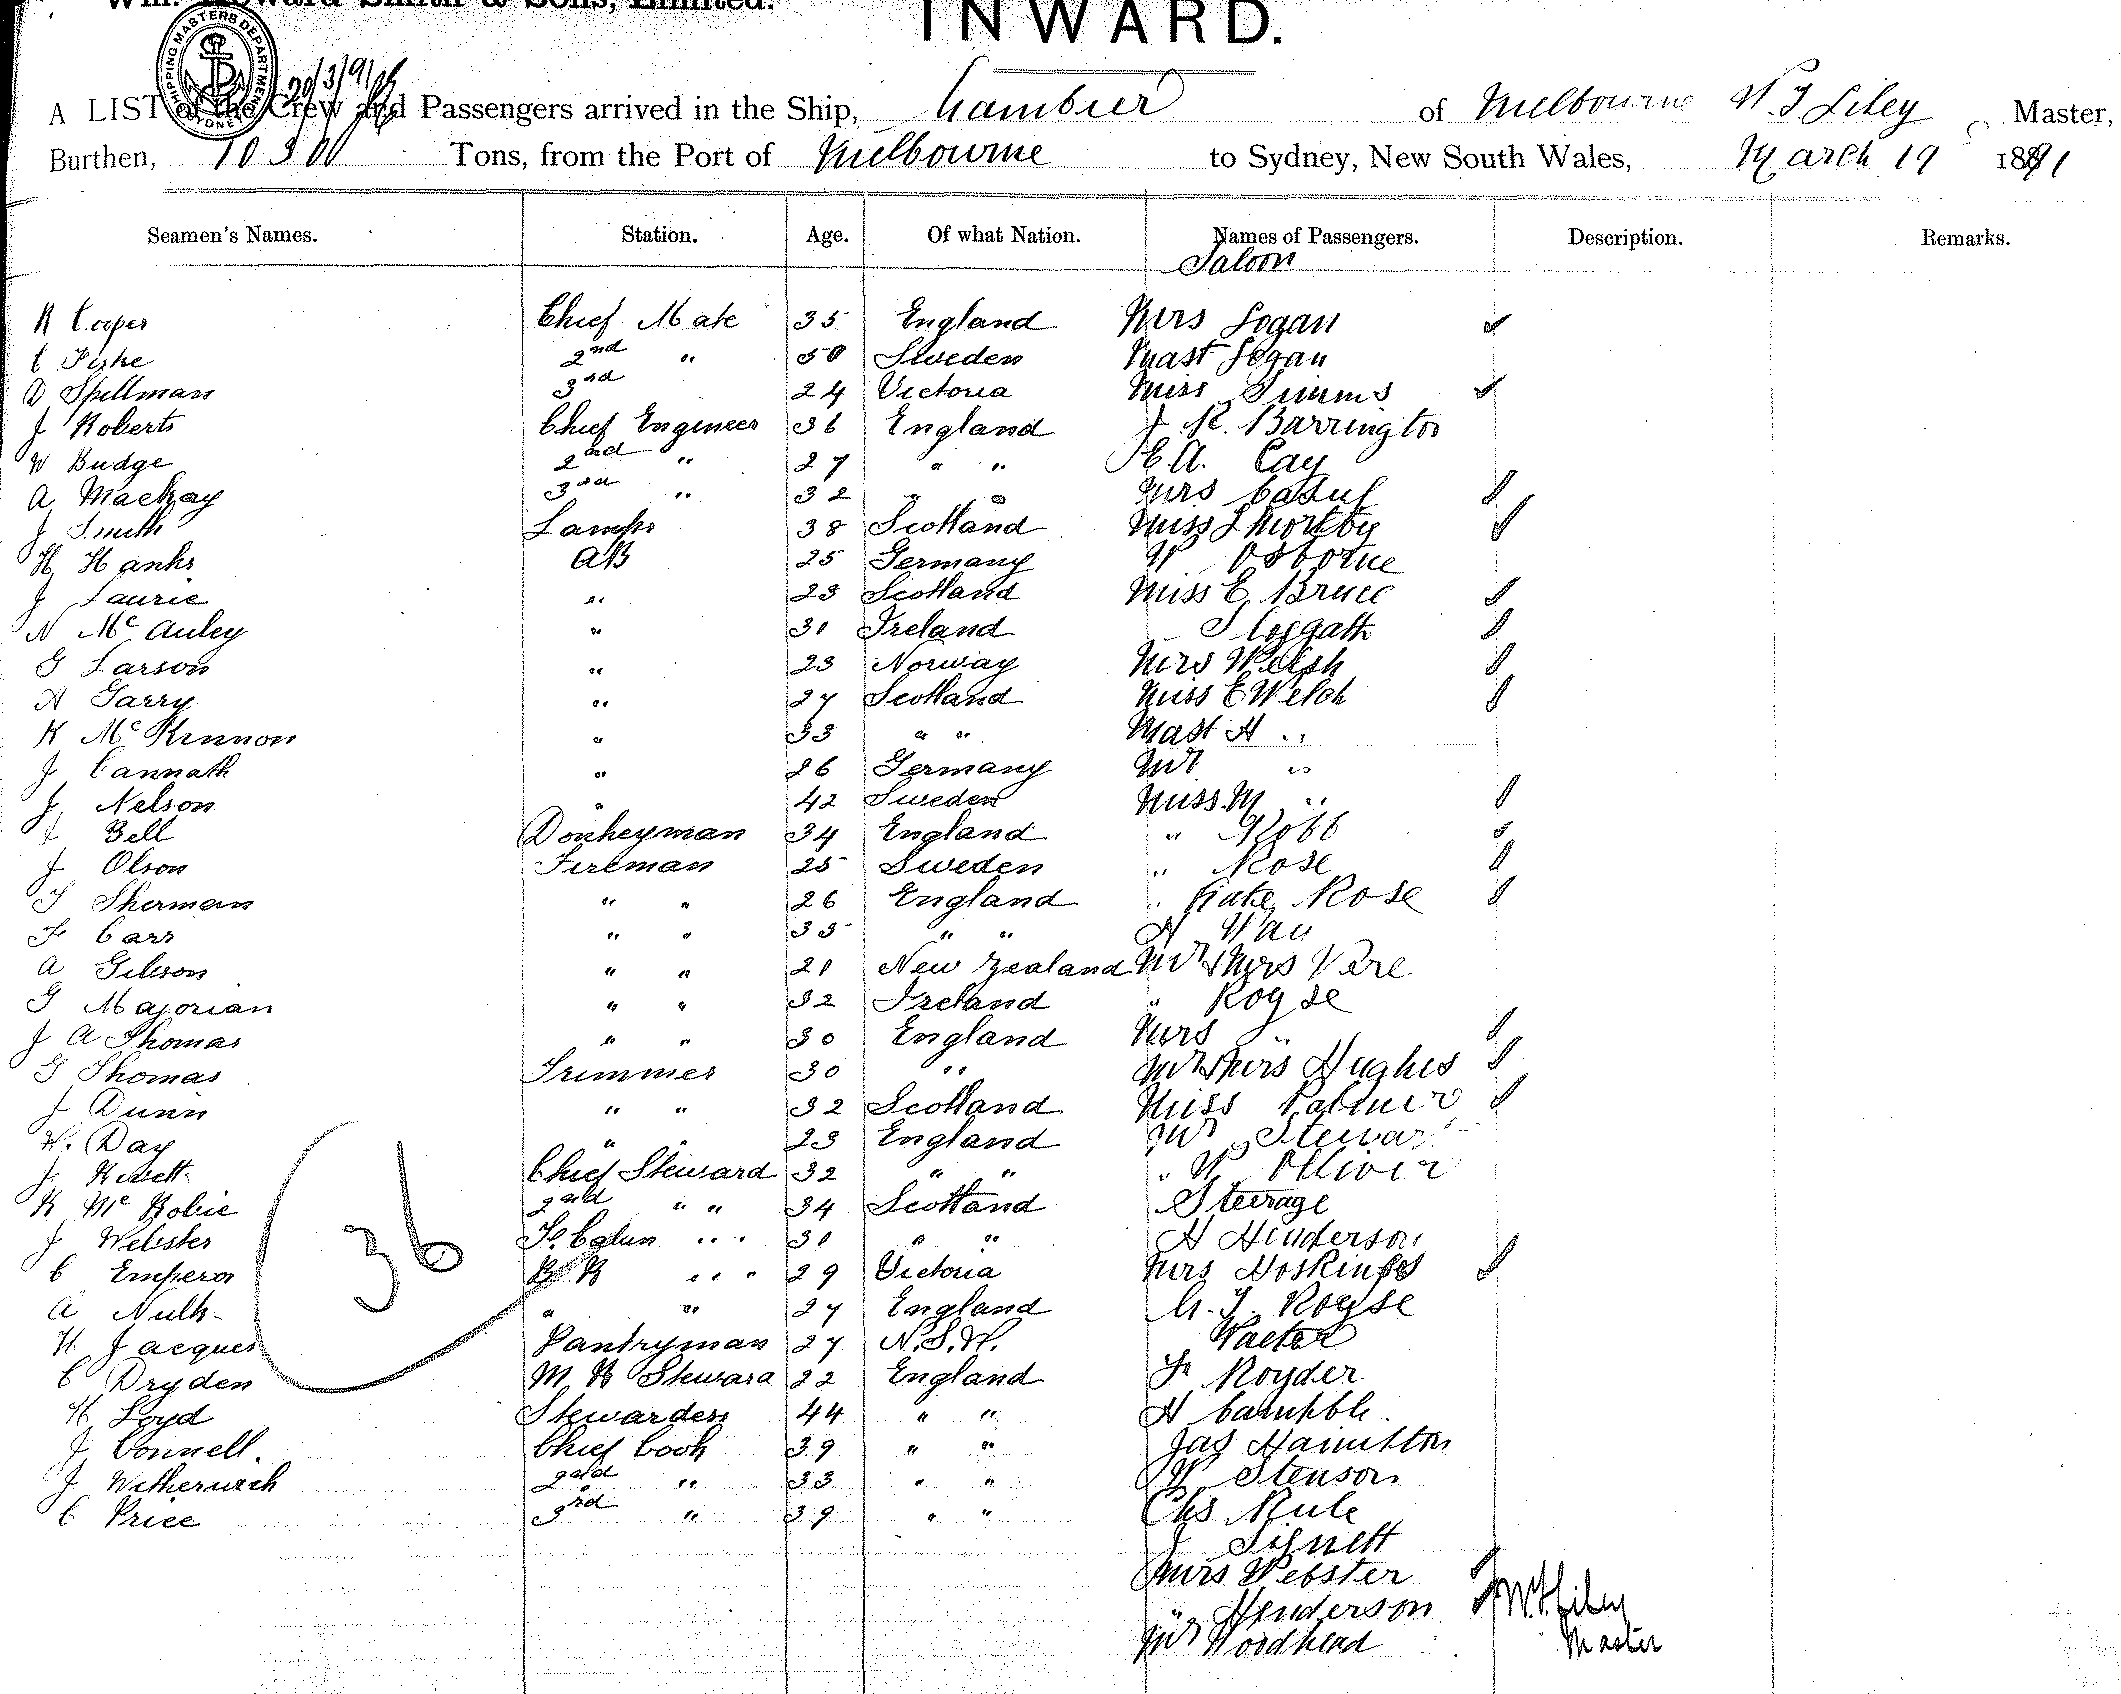 Wm. Howard Smith & Sons, Limited.
INWARD.
SHIPPING MASTERS DEPARTMENT SYDNEY
20/3/91
A LIST of the Crew and Passengers arrived in the Ship, Gambier of Melbourne W T Liley Master,
Burthen, Tons, from the Port of Melbourne to Sydney, New South Wales, March 19 1891
Seamen's Names. Station. Age. Of what Nation. Names of Passengers. Description. Remarks.
Saloon
R Cooper Chief Mate 35 England Mrs Logan
C 2nd " 50 Sweden Mast Logan
D Spellman 3rd 24 Victoria Miss Simms
J Roberts Chief Engineer 36 England J. R. Barrington
W Budge 2nd " 27 " " A. Cay
A Mackay 3rd " 32 " " Mrs
J Smith Lamps 38 Scotland Miss
H Hanks AB 25 Germany W Osborne
J Laurie " 23 Scotland Miss E Bruce
N McAuley " 30 Ireland
G Larson " 23 Norway Mrs Welsh
A Garry " 27 Scotland Miss E Welch
K McKinnon " 33 " " Mast A "
J Cannath " 26 Germany Mr "
J Nelson " 42 Sweden Miss M "
J Bell Donkeyman 34 England " Robb
J Olson Fireman 25 Sweden " Rose
T Sherman " " 26 England " Kate Rose
F Carr " " 35 " " A
A Gibson " " 20 New Zealand Mr & Mrs Vere
G Majorian " " 32 Ireland " Rogse
J A Thomas " " 30 England Mrs "
G Thomas Trimmer 30 " " Mr & Mrs Hughes
J Dunn " " 32 Scotland Miss Palmer
W. Day " " 23 England Mr Stewart
J Chief Steward 32 " " " W Ollivier
K McRobie 2nd " " 34 Scotland Steerage
J Webster " " 30 " " A Henderson
C Emperor " " 29 Victoria Mrs Hoskings
A " " 27 England G. T. Rogse
H Jacques Pantryman 27 N.S.W. Walter
C Dryden M R Steward 22 England Fr Royder
H Loyd Stewardess 44 " " A Campble.
J Connell. Chief Cook 39 " " Jas Hamilton
J 2nd " 33 " " W Stenson
C Price 3rd " 39 " " Chs Rule
36
J Signett
Mrs Webster
" Henderson
Mr Woodhead
W. T. Liley
Master